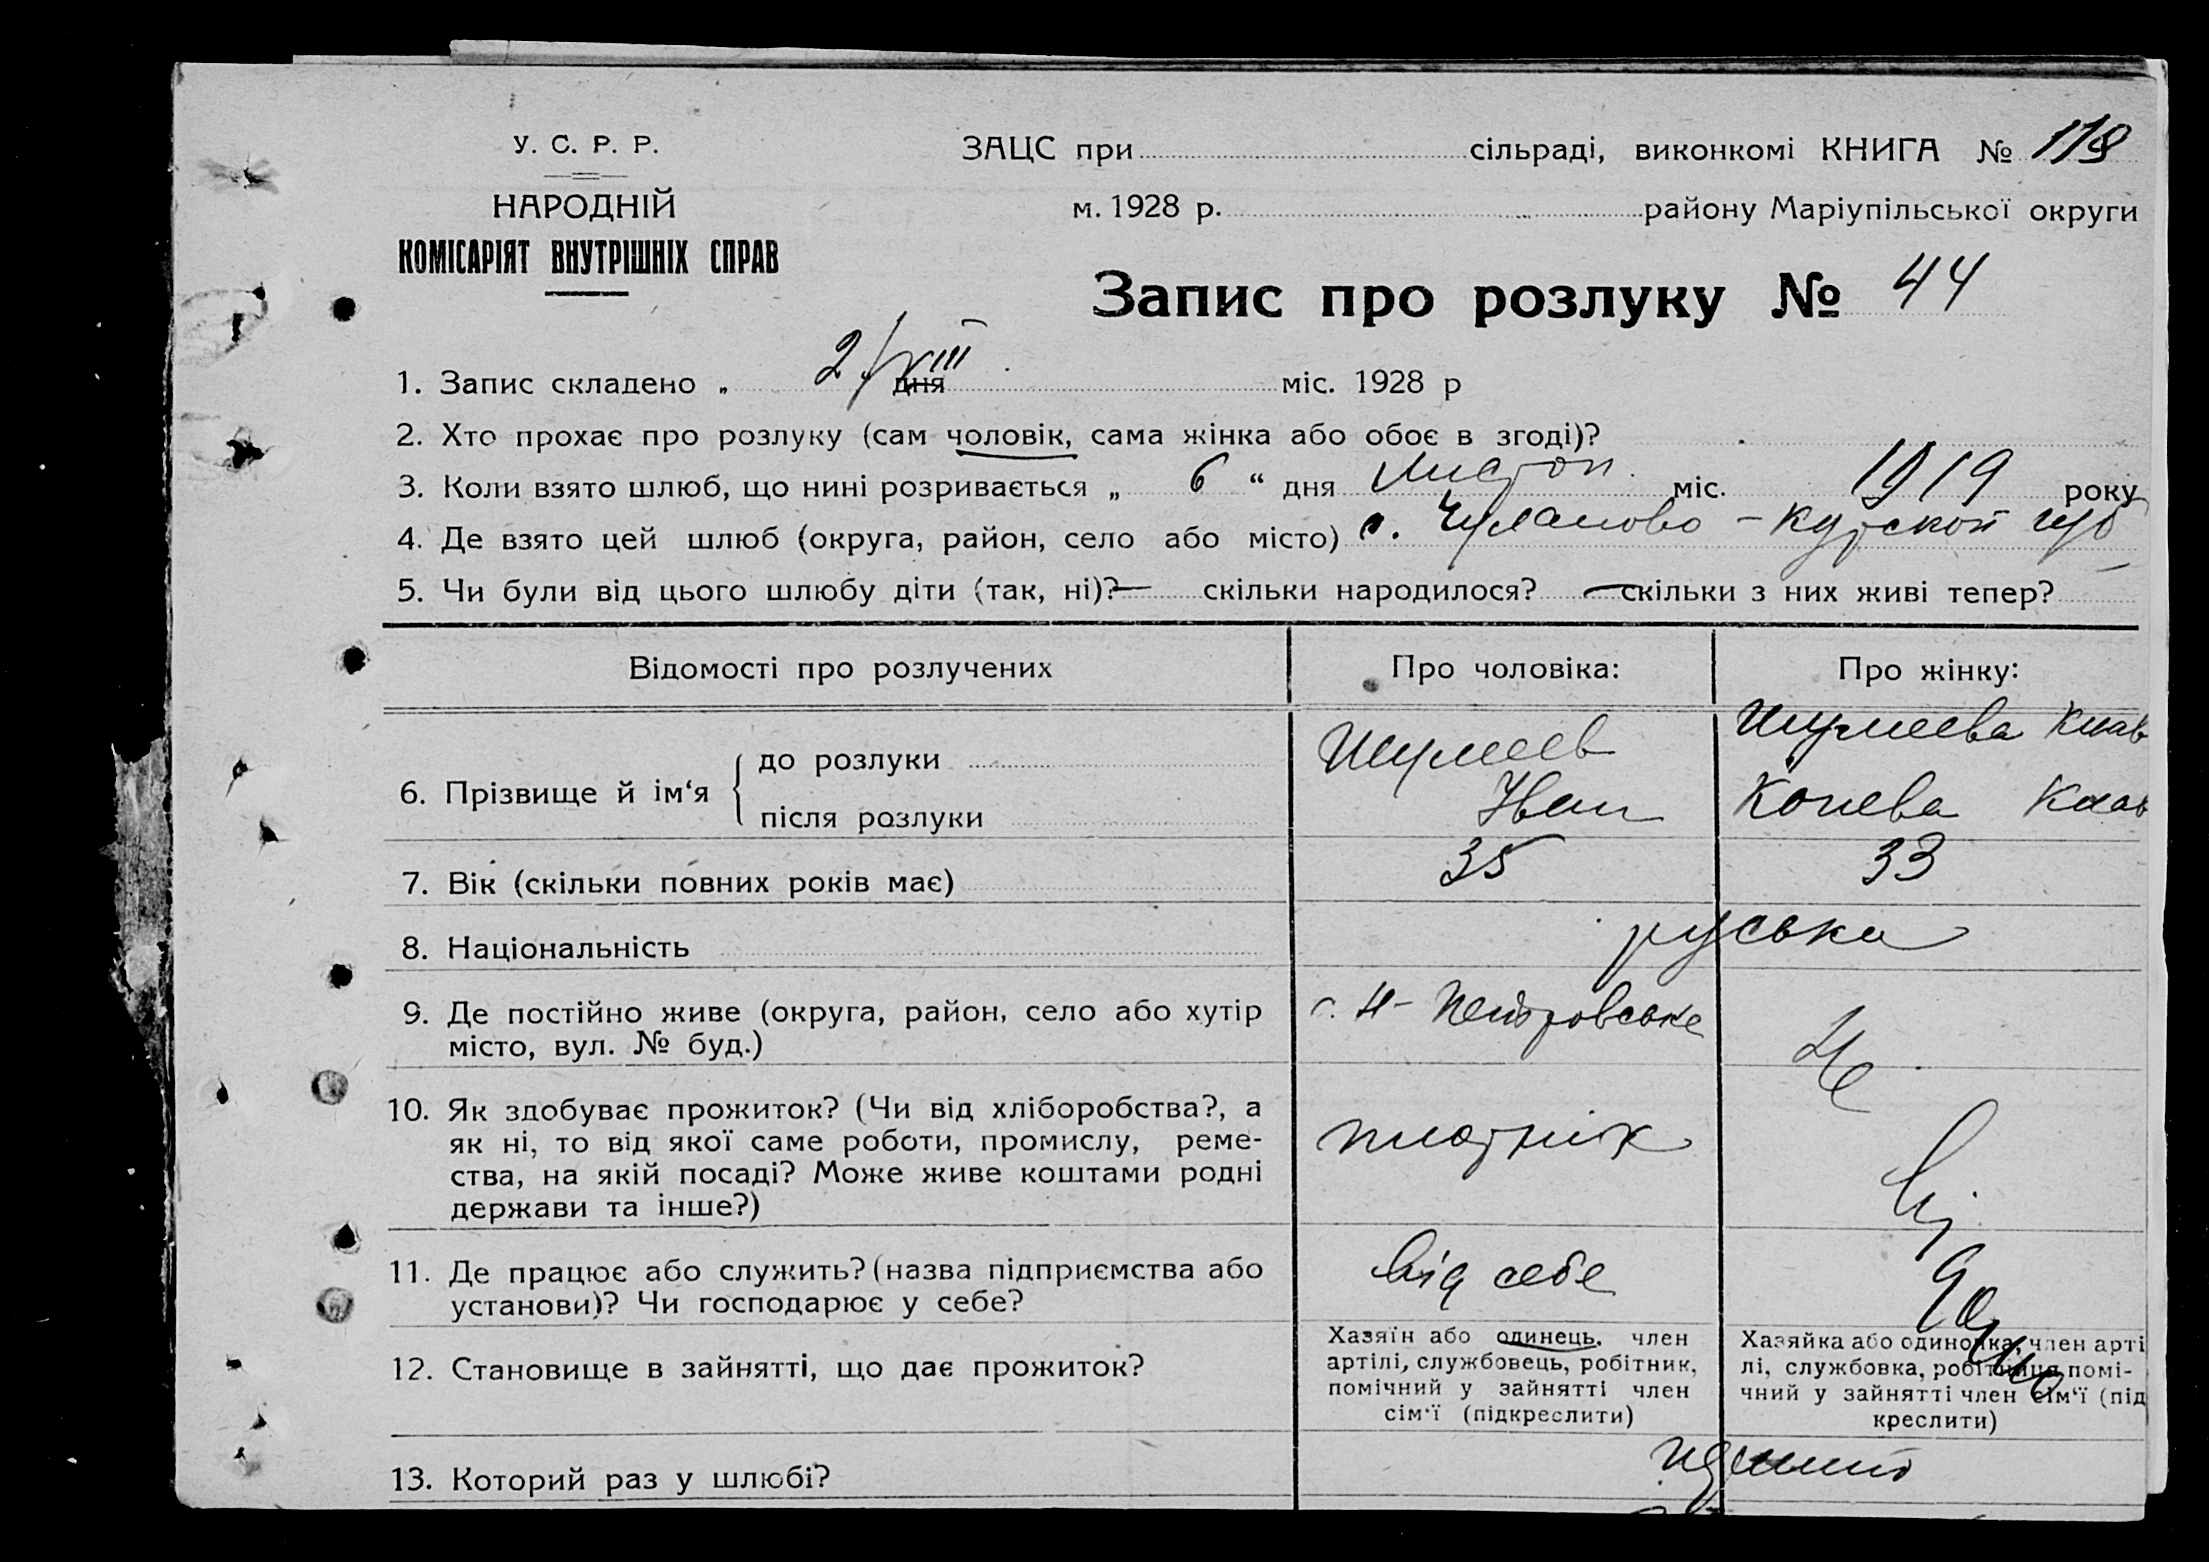 У. С. Р. Р.
НАРОДНІЙ
КОМІСАРІЯТ ВНУТРІШНІХ СПРАВ
ЗАЦС при сільраді, виконкомі КНИГА № 118
м. 1928 р. району Маріупільської округи
Запис про розлуку № 44
1. Запис складено „ 2/VIII дня міс. 1928 р
2. Хто прохає про розлуку (сам чоловік, сама жінка або обоє в згоді)?
3. Коли взято шлюб, що нині розривається „ 6 “ дня листоп. міс. 1919 року
4. Де взято цей шлюб (округа, район, село або місто) с. Чуланово - Курской губ
5. Чи були від цього шлюбу діти (так, ні)? — скільки народилося? — скільки з них живі тепер?
Відомості про розлучених
Про чоловіка:
Про жінку:
6. Прізвище й ім‘я { до розлуки
після розлуки
Шумеев
Иван
Шумеева Клав
Конева Клав
7. Вік (скільки повних років має)
35
33
8. Національність
руська
9. Де постійно живе (округа, район, село або хутір
місто, вул. № буд.)
с. Н-Петровське
10. Як здобуває прожиток? (Чи від хліборобства?, а
як ні, то від якої саме роботи, промислу, реме-
ства, на якій посаді? Може живе коштами родні
держави та інше?)
плотнік
11. Де працює або служить? (назва підприємства або
установи)? Чи господарює у себе?
від себе
12. Становище в зайнятті, що дає прожиток?
Хазяїн або одинець, член
артілі, службовець, робітник,
помічний у зайнятті член
сім‘ї (підкреслити)
Хазяйка або одиночка, член арті
лі, службовка, робітниця, помі-
чний у зайнятті член сім‘ї (під
креслити)
13. Которий раз у шлюбі?